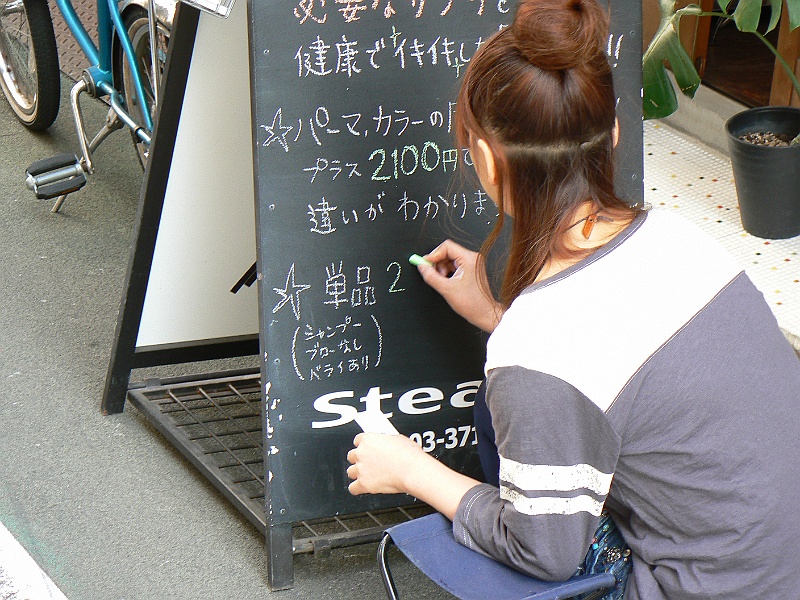 必要なサプリ
健康でイキイキし
☆パーマ、カラーの
プラス2100円で
違いがわかりま
☆単品 2
(シャンプー
ブローなし
ドライあり)
Stea
03-371